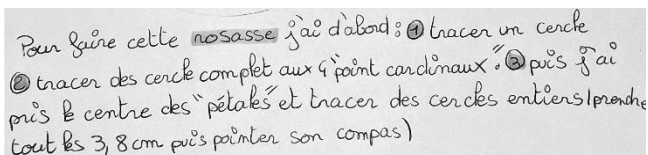 Pour faire cette rosasse j'ai d'abord : ① tracer un cercle
② tracer des cercle complet aux 4 "point cardinaux". ③ puis j'ai
pris le centre des "pétales" et tracer des cercles entiers (prendre
tout les 3,8cm puis pointer son compas)